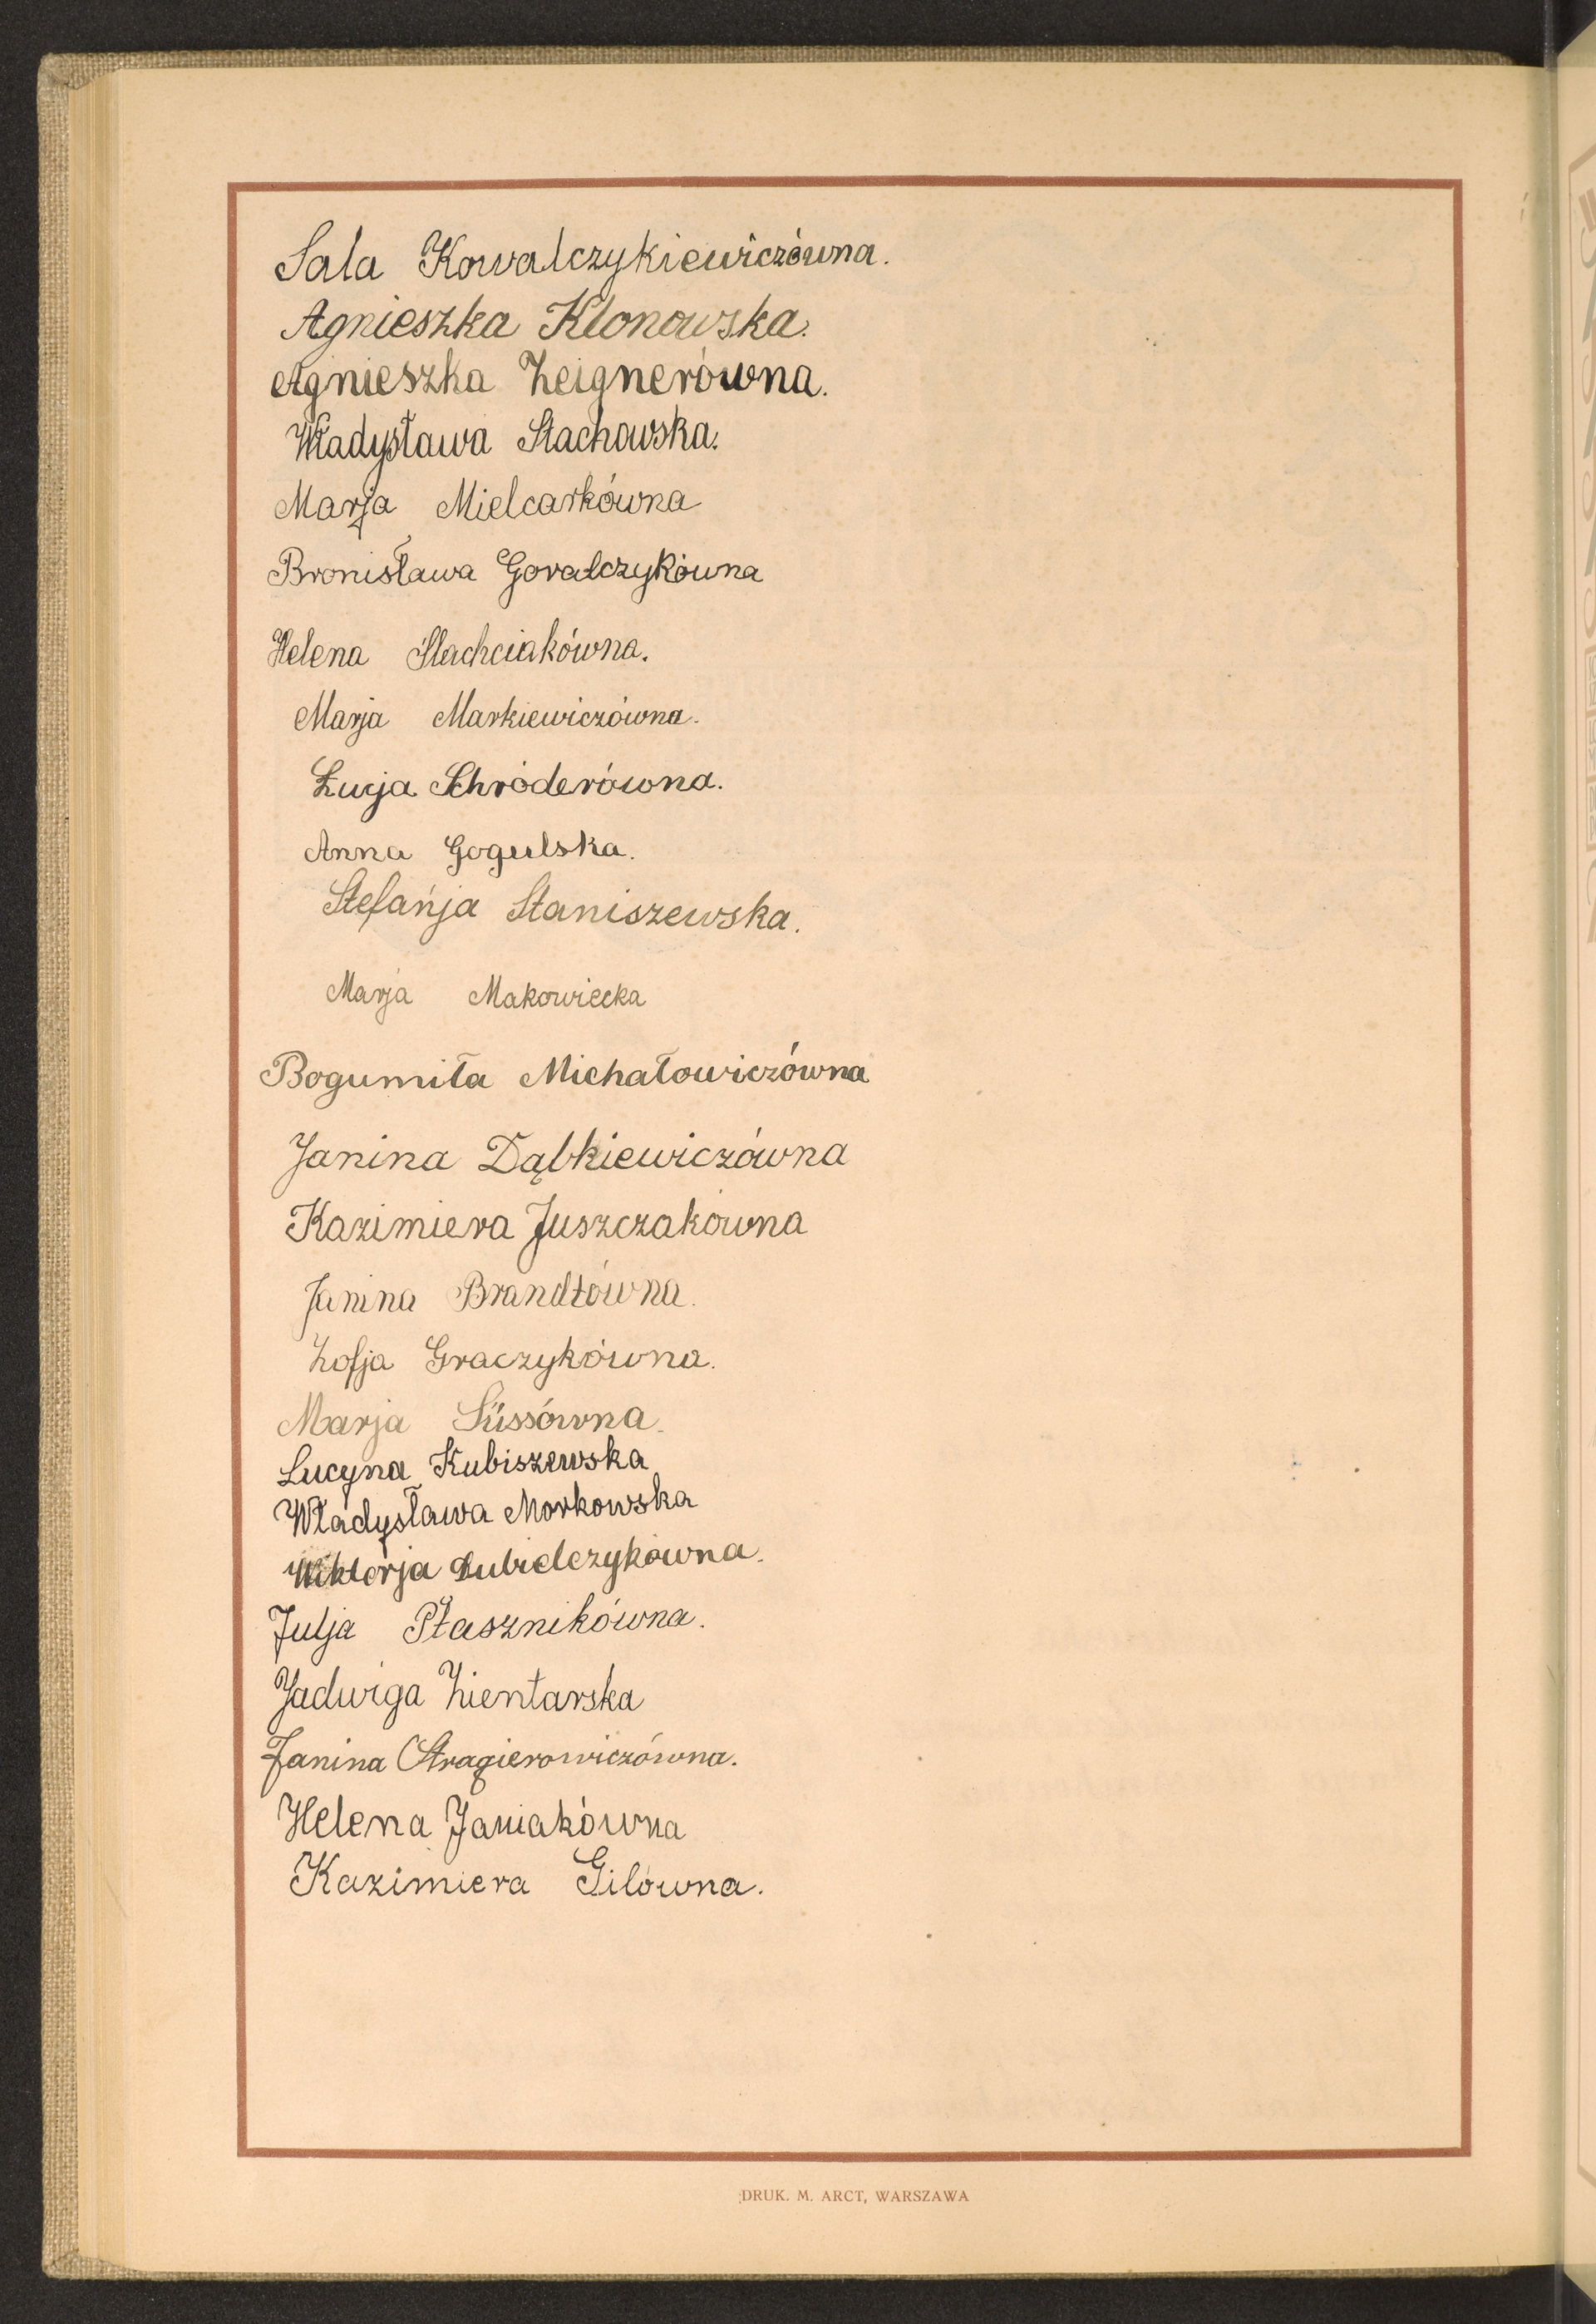 Sala Kowalczykiewiczówna.
Agnieszka Klonowska.
Agnieszka Zeignerówna.
Władysława Stachowska.
Marja Mielcarkówna
Bronisława Goralczykówna
Helena Slachciakówna.
Marja Markiewiczówna.
Łucja Schröderówna.
Anna Gogulska.
Stefańja Staniszewska.
Marja Makowiecka
Bogumiła Michałowiczówna
Janina Dąbkiewiczówna
Kazimiera Juszczakówna
Janina Brandtówna.
Zofja Graczykówna.
Marja Süssówna.
Lucyna Kubiszewska
Władysława Morkowska
Wiktorja Dubielczykówna.
Julja Ptasznikówna.
Jadwiga Zientarska
Janina Stragierowiczówna.
Helena Janiakówna
Kazimiera Gilówna.
DRUK. M. ARCT, WARSZAWA